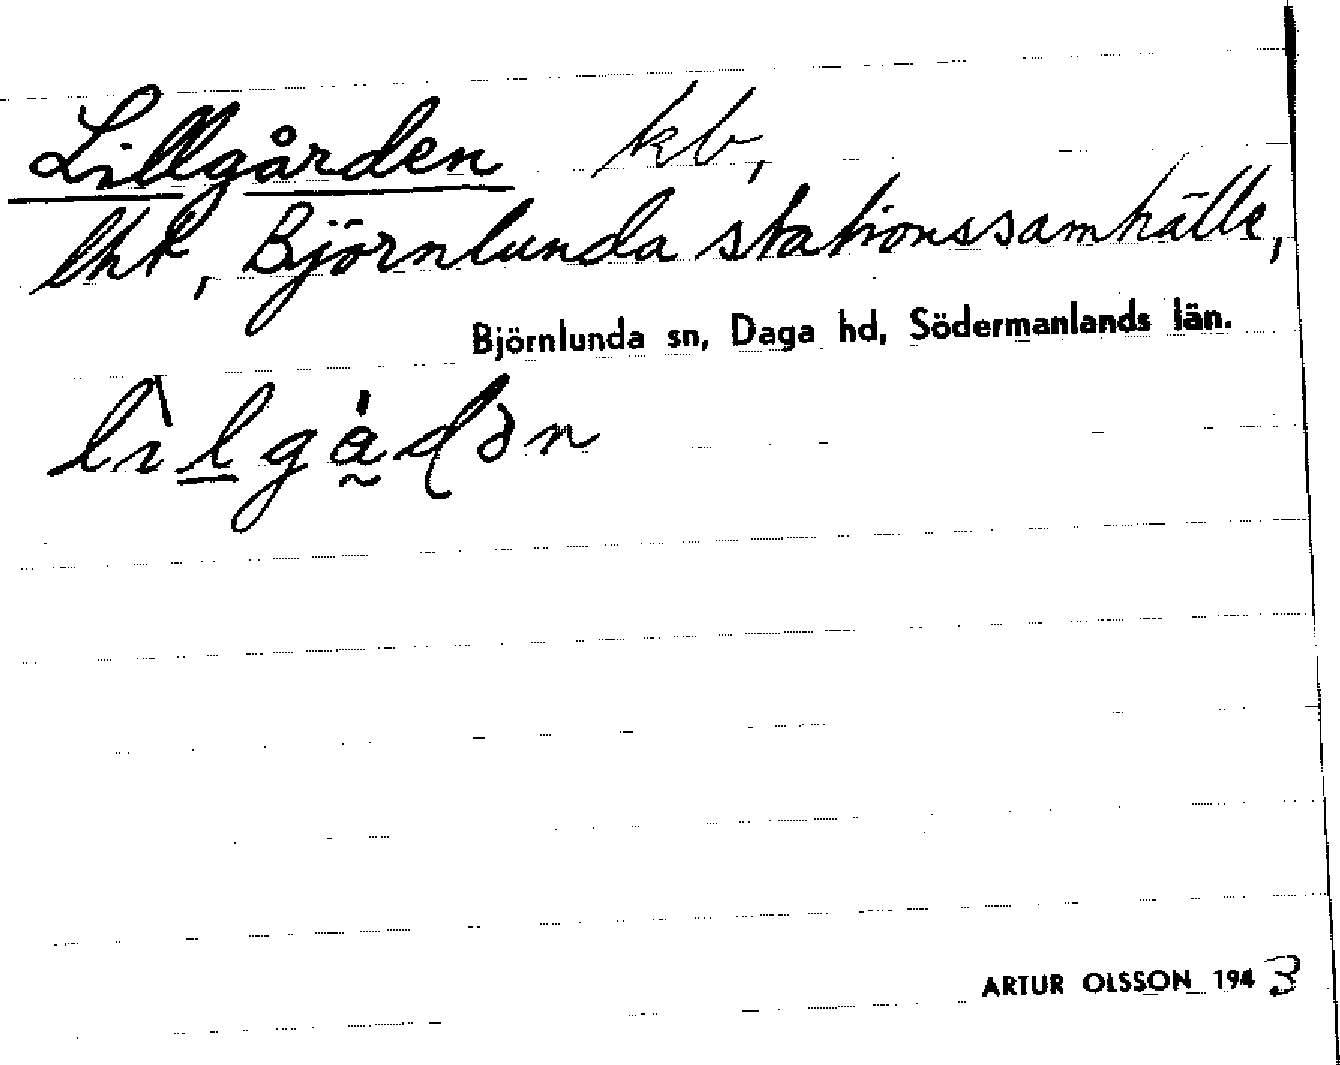 Lillgården kb,
lht, Björnlunda stationssamhälle,
Björnlunda sn, Daga hd, Södermanlands län.
ARTUR OLSSON 1943